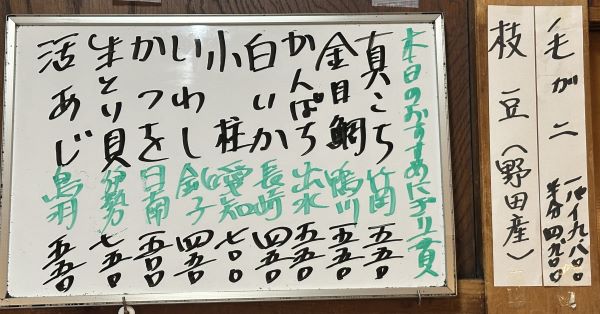 毛がニ
一パイ九、八〇〇
半分四、九〇〇
枝豆（野田産）
本日のおすすめにぎり一貫
真こち 竹岡 五五〇
金目鯛 鴨川 五五〇
かんぱち 出水 五五〇
白いか 長崎 四五〇
小柱 愛知 七〇〇
いわし 銚子 四五〇
かつを 日南 五〇〇
生とり貝 伊勢 七五〇
活あじ 鳥羽 五五〇